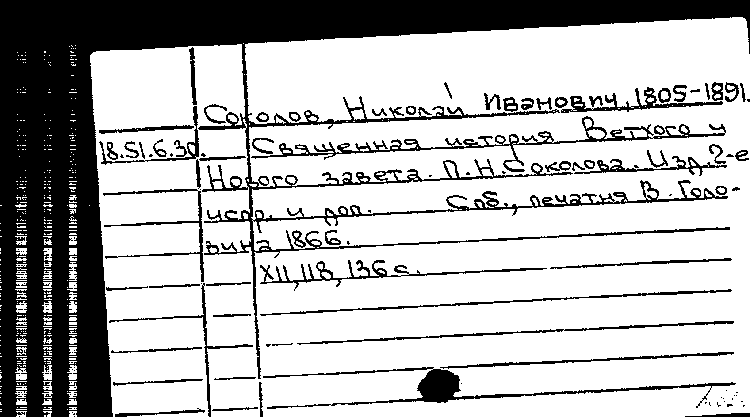 Соколов, Николай Иванович, 1805-1891.
18.51.6.30. Священная история Ветхого и
Нового завета. П.Н.Соколова. Изд.2-е
испр. и доп. Спб., печатня В. Голо-
вина, 1866.
XII, 118, 136 с.